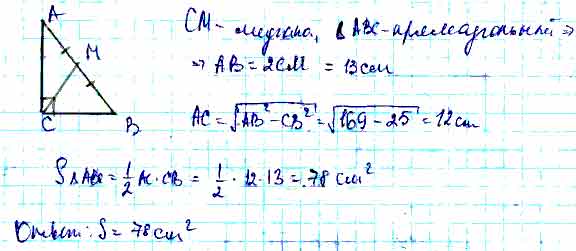 A
M
C
B
CM - медиана, △ABC - прямоугольный ⇒
⇒ AB = 2CM = 13 см
AC = √(AB² - CB²) = √(169 - 25) = 12 см
S△ABC = 1/2 AC · CB = 1/2 · 12 · 13 = 78 см²
Ответ: S = 78 см²